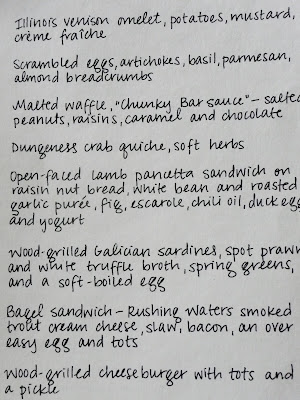 Illinois venison omelet, potatoes, mustard,
crème fraîche
Scrambled eggs, artichokes, basil, parmesan,
almond breadcrumbs
Malted waffle, "Chunky Bar sauce" - salted
peanuts, raisins, caramel and chocolate
Dungeness crab quiche, soft herbs
Open-faced lamb pancetta sandwich on
raisin nut bread, white bean and roasted
garlic purée, fig, escarole, chili oil, duck egg
and yogurt
Wood-grilled Galician sardines, spot prawn
and white truffle broth, spring greens,
and a soft-boiled egg
Bagel sandwich - Rushing Waters smoked
trout cream cheese, slaw, bacon, an over
easy egg and tots
Wood-grilled cheeseburger with tots and
a pickle